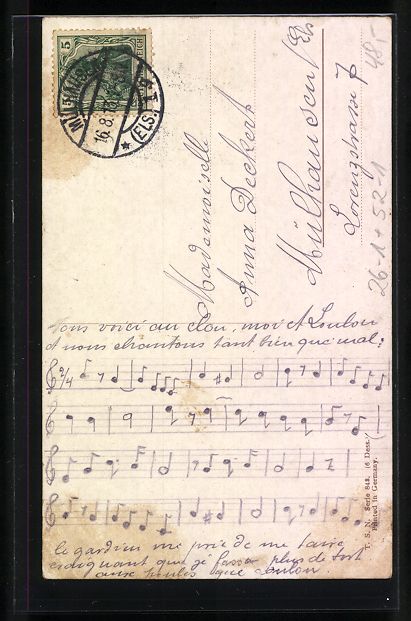 5
MÜLHAUSEN
16.8.
(ELS.)
Mademoiselle
Anna Deckert
Mülhausen i/Els
Lorenzstrasse 7
48.-
26-1 + 52-1
Nous voici au clou, moi et Loulou
et nous chantons tant bien que mal:
2/4
le gardien me prie de me taire
craignant que je fasse plus de tort
aux poules que Loulou.
T. S. N. Serie 848. (6 Dess.)
Printed in Germany.